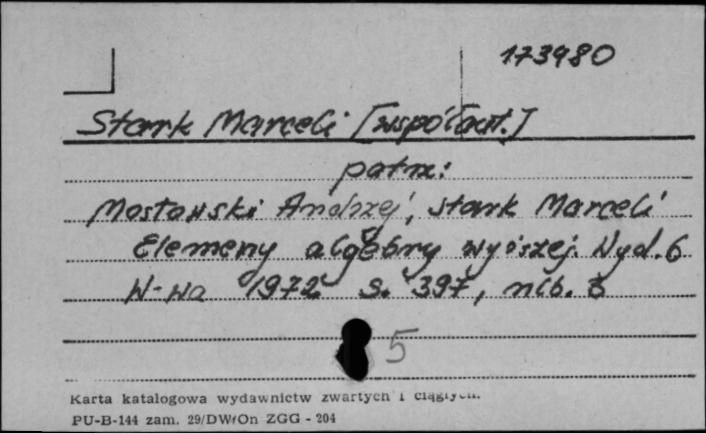 173980
Stark Marceli [współaut.]
patrz:
Mostowski Andrzej, Stark Marceli
Elemeny algebry wyższej. Wyd. 6
W-wa 1972 s. 397, nlb. 3
5
Karta katalogowa wydawnictw zwartych i ciągłych.
PU-B-144 zam. 29/DWfOn ZGG - 204